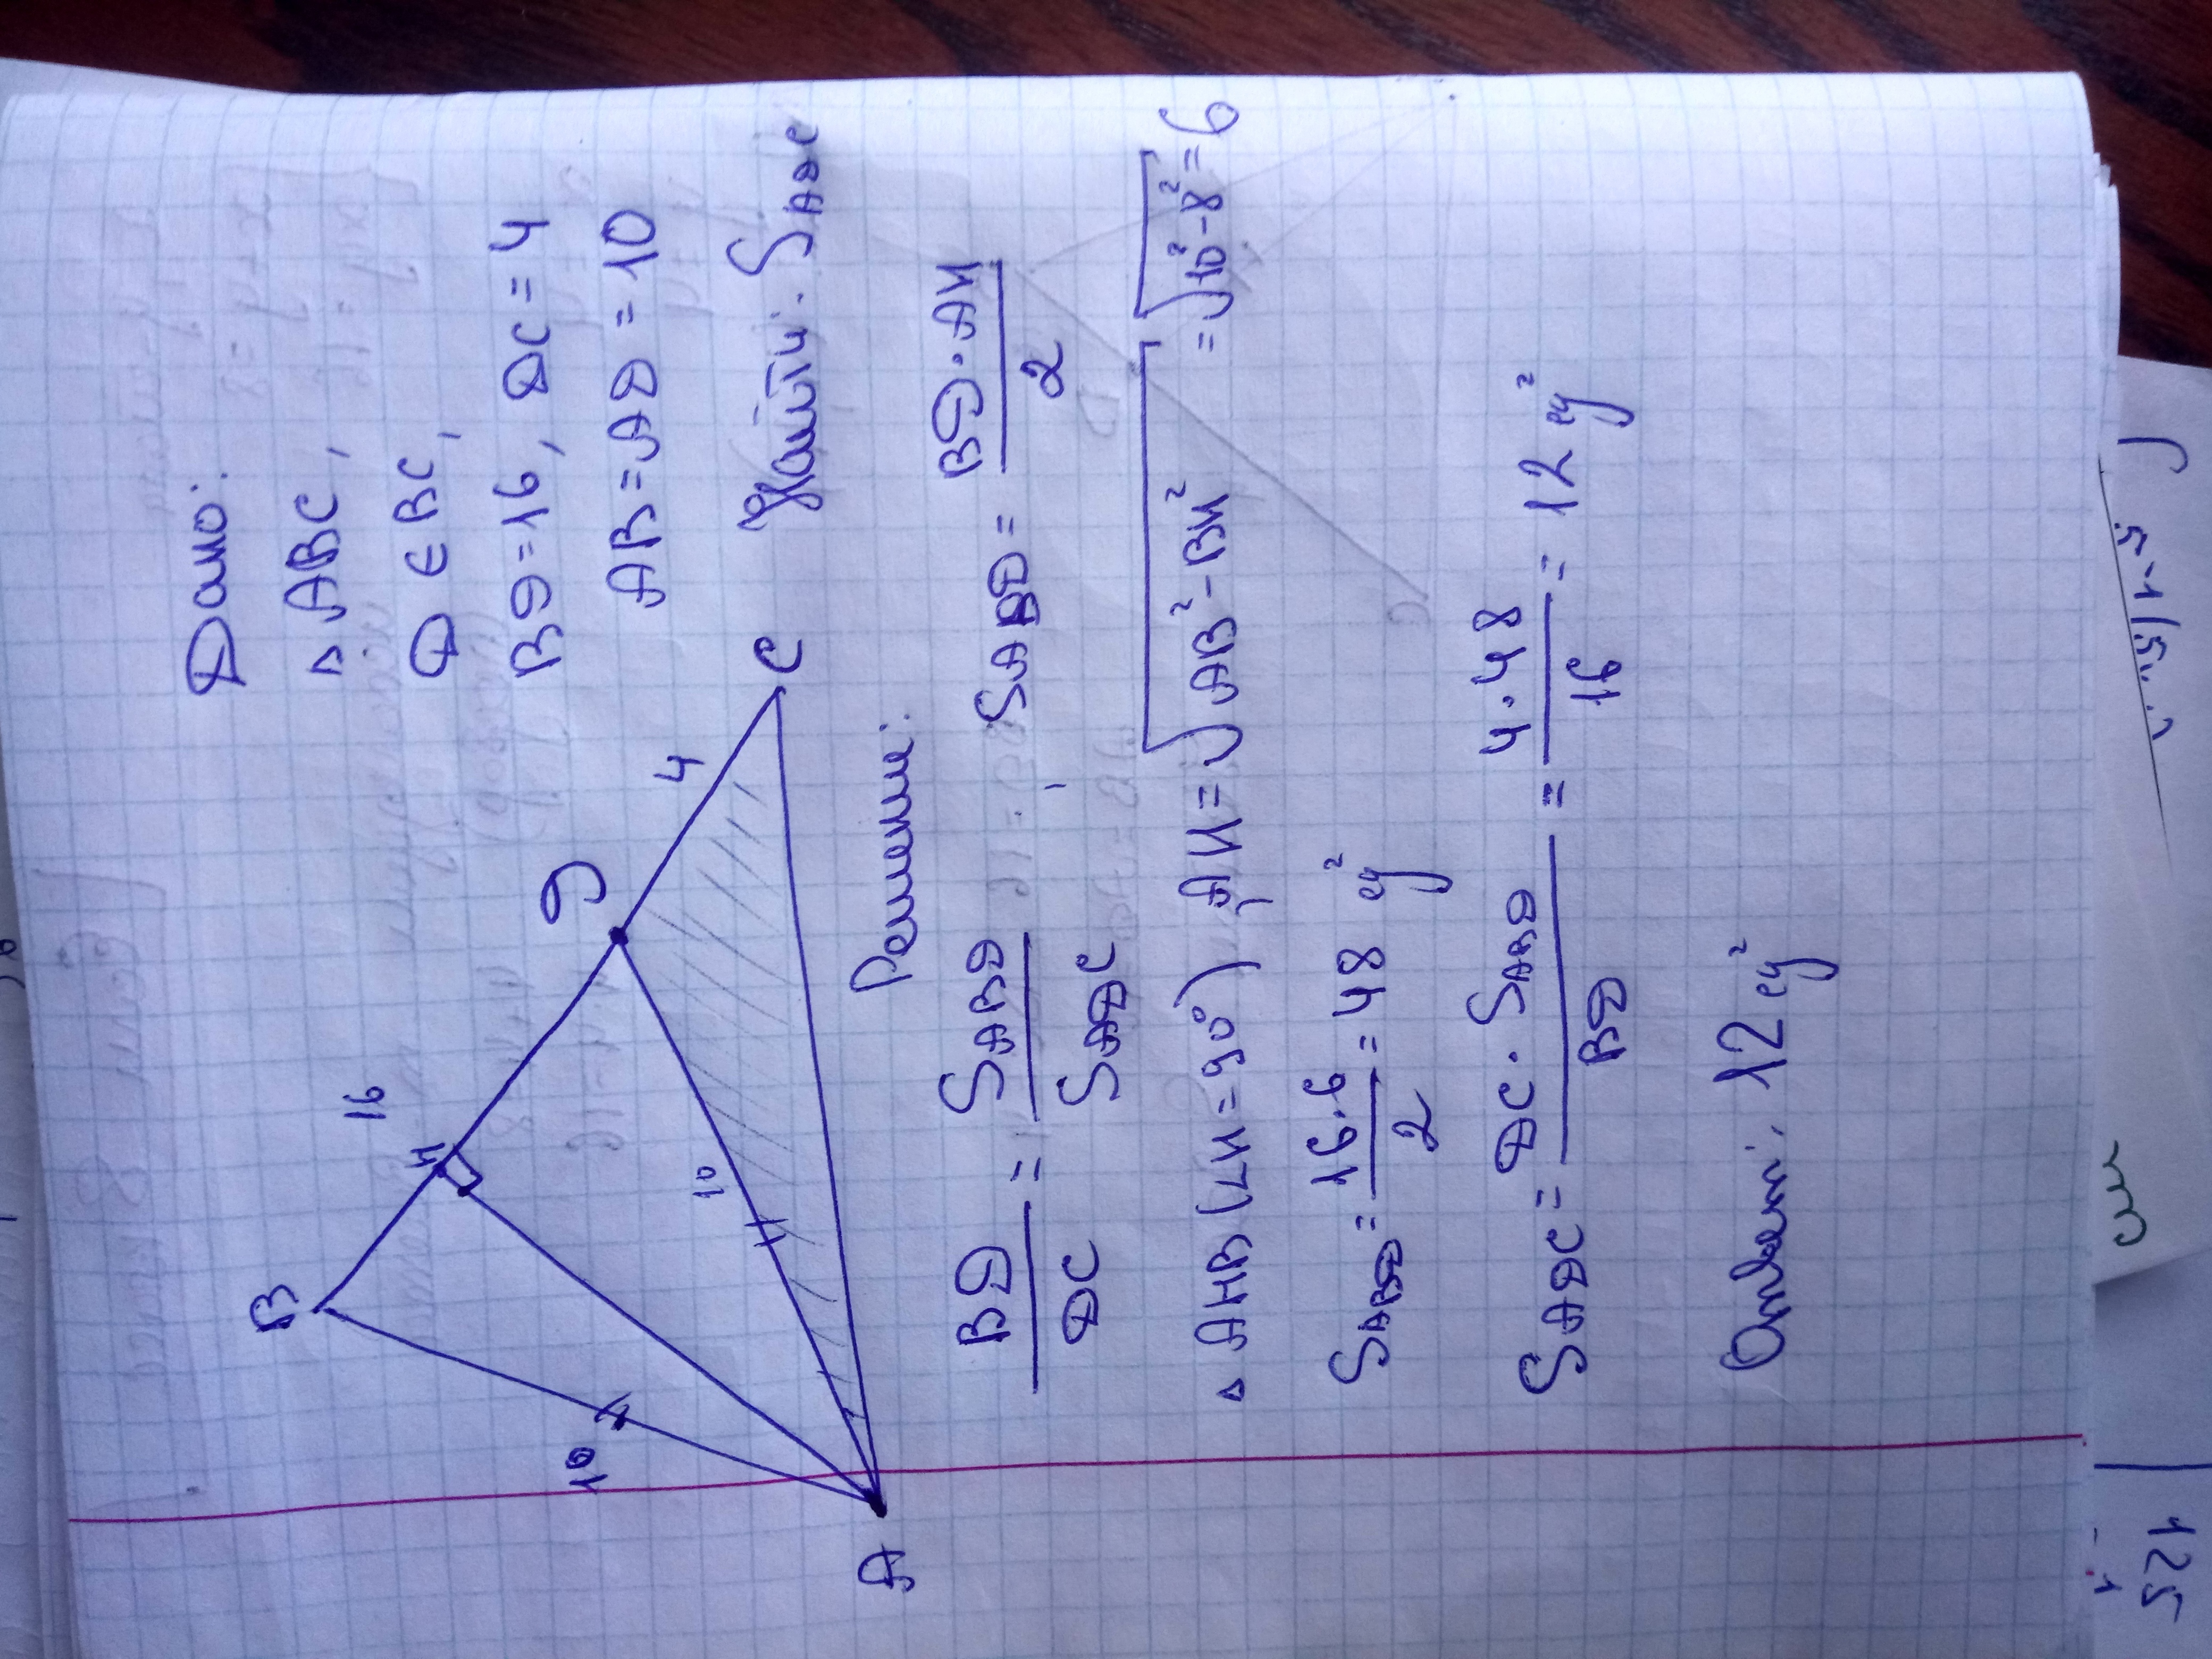 B
16
H
D
4
C
10
10
A
Дано:
△ ABC,
D ∈ BC,
BD = 16, DC = 4
AB = AD = 10
Найти: S_ADC
Решение:
BD/DC = S_ABD/S_ADC    S_ABD = (BD · AH)/2
△ AHB (∠H = 90°), AH = √(AB² - BH²) = √(10² - 8²) = 6
S_ABD = (16 · 6)/2 = 48 ед²
S_ADC = (DC · S_ABD)/BD = (4 · 48)/16 = 12 ед²
Ответ: 12 ед²
125